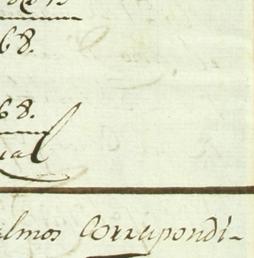 68.
68.
ual
almos Corrupondi-